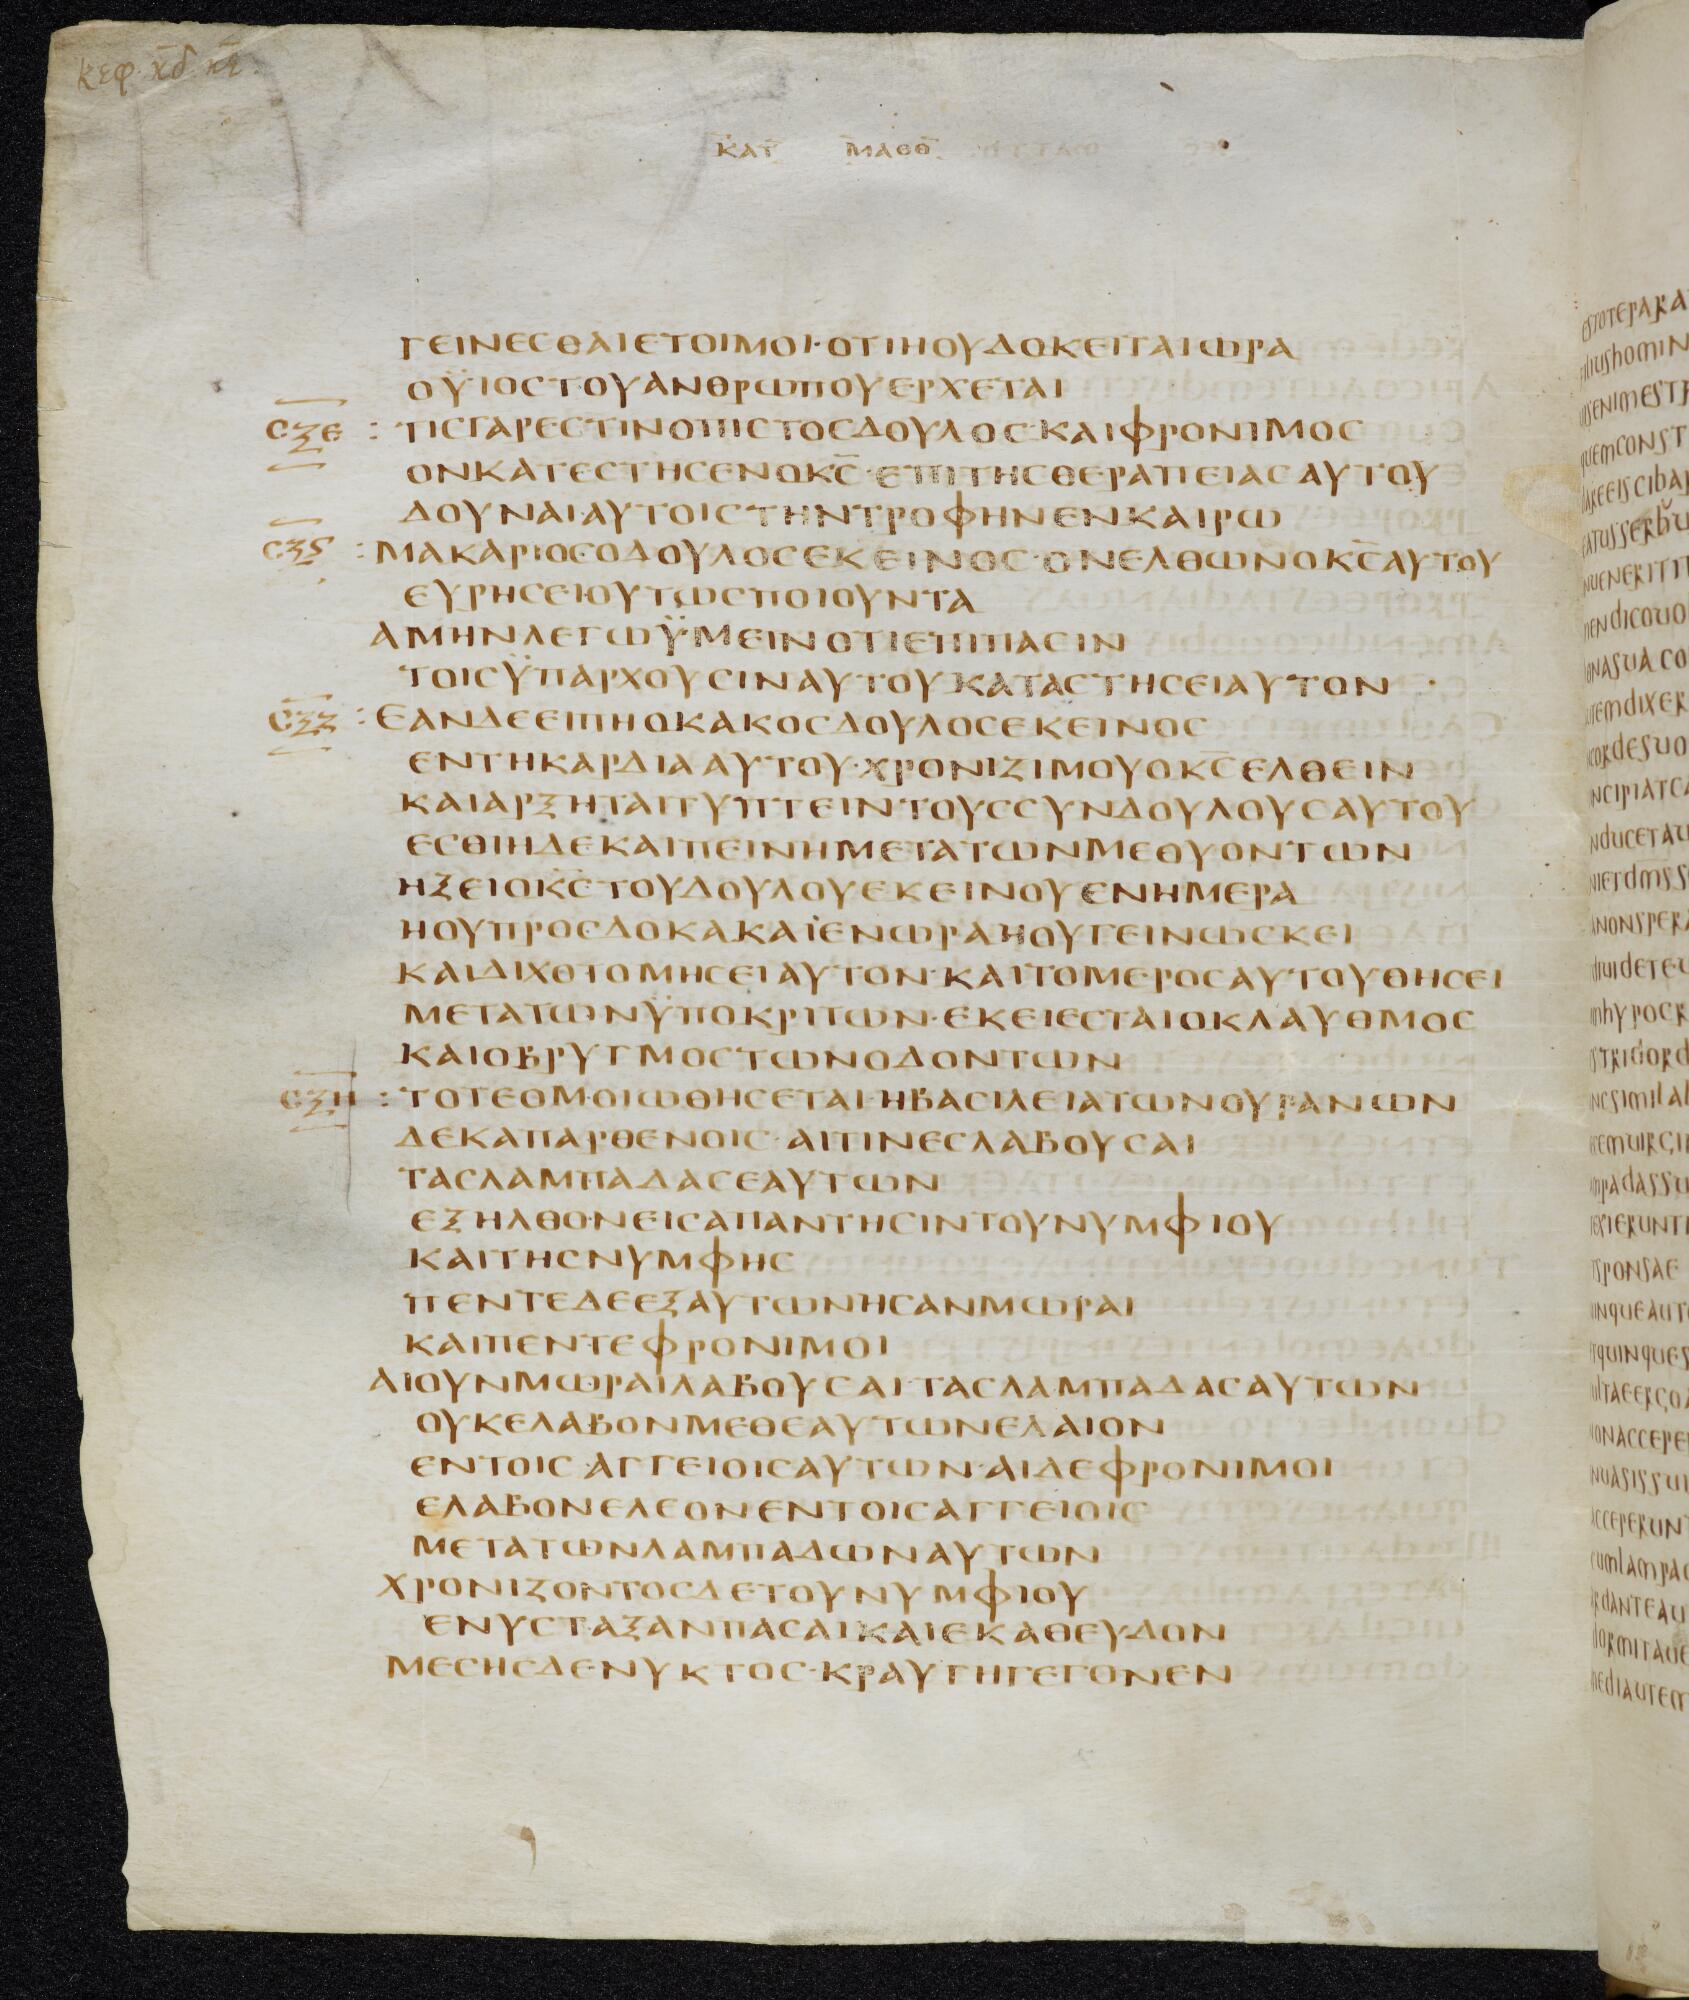 κεφ κ̅δ κ̅ε
ΚΑΤ ΜΑΘΘ
ΓΕΙΝΕСΘΑΙΕΤΟΙΜΟΙ·ΟΤΙΗΟΥΔΟΚΕΙΤΑΙΩΡΑ
ΟΫΙΟСΤΟΥΑΝΘΡΩΠΟΥΕΡΧΕΤΑΙ
СΞΕ : ΤΙСΓΑΡΕСΤΙΝΟΠΙСΤΟСΔΟΥΛΟС·ΚΑΙΦΡΟΝΙΜΟС
ΟΝΚΑΤΕСΤΗСΕΝΟΚ̅С̅·ΕΠΙΤΗСΘΕΡΑΠΕΙΑСΑΥΤΟΥ
ΔΟΥΝΑΙ·ΑΥΤΟΙСΤΗΝΤΡΟΦΗΝΕΝΚΑΙΡΩ
СΞϚ : ΜΑΚΑΡΙΟСΟΔΟΥΛΟСΕΚΕΙΝΟС·ΟΝΕΛΘΩΝΟΚ̅С̅ΑΥΤΟΥ
ΕΥΡΗСΕΙΟΥΤΩСΠΟΙΟΥΝΤΑ
ΑΜΗΝΛΕΓΩΫΜΕΙΝΟΤΙΕΠΙΠΑСΙΝ
ΤΟΙСΫΠΑΡΧΟΥСΙΝΑΥΤΟΥΚΑΤΑСΤΗСΕΙΑΥΤΟΝ
СΞΖ : ΕΑΝΔΕΕΙΠΗΟΚΑΚΟСΔΟΥΛΟСΕΚΕΙΝΟС
ΕΝΤΗΚΑΡΔΙΑΑΥΤΟΥ·ΧΡΟΝΙΖΙΜΟΥΟΚ̅С̅ΕΛΘΕΙΝ
ΚΑΙΑΡΞΗΤΑΙΤΥΠΤΕΙΝΤΟΥССΥΝΔΟΥΛΟΥСΑΥΤΟΥ
ΕСΘΙΗΔΕΚΑΙΠΕΙΝΗΜΕΤΑΤΩΝΜΕΘΥΟΝΤΩΝ
ΗΞΕΙΟΚ̅С̅ΤΟΥΔΟΥΛΟΥΕΚΕΙΝΟΥΕΝΗΜΕΡΑ
ΗΟΥΠΡΟСΔΟΚΑΚΑΙΕΝΩΡΑΗΟΥΓΕΙΝΩСΚΕΙ
ΚΑΙΔΙΧΟΤΟΜΗСΕΙΑΥΤΟΝ·ΚΑΙΤΟΜΕΡΟСΑΥΤΟΥΘΗСΕΙ
ΜΕΤΑΤΩΝΫΠΟΚΡΙΤΩΝ·ΕΚΕΙΕСΤΑΙΟΚΛΑΥΘΜΟС
ΚΑΙΟΒΡΥΓΜΟСΤΩΝΟΔΟΝΤΩΝ
СΞΗ : ΤΟΤΕΟΜΟΙΩΘΗСΕΤΑΙ·ΗΒΑСΙΛΕΙΑΤΩΝΟΥΡΑΝΩΝ
ΔΕΚΑΠΑΡΘΕΝΟΙС·ΑΙΤΙΝΕСΛΑΒΟΥСΑΙ
ΤΑСΛΑΜΠΑΔΑСΕΑΥΤΩΝ
ΕΞΗΛΘΟΝΕΙСΑΠΑΝΤΗСΙΝΤΟΥΝΥΜΦΙΟΥ
ΚΑΙΤΗСΝΥΜΦΗС
ΠΕΝΤΕΔΕΕΞΑΥΤΩΝΗСΑΝΜΩΡΑΙ
ΚΑΙΠΕΝΤΕΦΡΟΝΙΜΟΙ
ΑΙΟΥΝΜΩΡΑΙΛΑΒΟΥСΑΙ·ΤΑСΛΑΜΠΑΔΑСΑΥΤΩΝ
ΟΥΚΕΛΑΒΟΝΜΕΘΕΑΥΤΩΝΕΛΑΙΟΝ
ΕΝΤΟΙС·ΑΓΓΕΙΟΙСΑΥΤΩΝ·ΑΙΔΕΦΡΟΝΙΜΟΙ
ΕΛΑΒΟΝΕΛΕΟΝΕΝΤΟΙСΑΓΓΕΙΟΙС
ΜΕΤΑΤΩΝΛΑΜΠΑΔΩΝΑΥΤΩΝ
ΧΡΟΝΙΖΟΝΤΟСΔΕΤΟΥΝΥΜΦΙΟΥ
ΕΝΥСΤΑΞΑΝΠΑСΑΙΚΑΙΕΚΑΘΕΥΔΟΝ
ΜΕСΗСΔΕΝΥΚΤΟС·ΚΡΑΥΓΗΓΕΓΟΝΕΝ